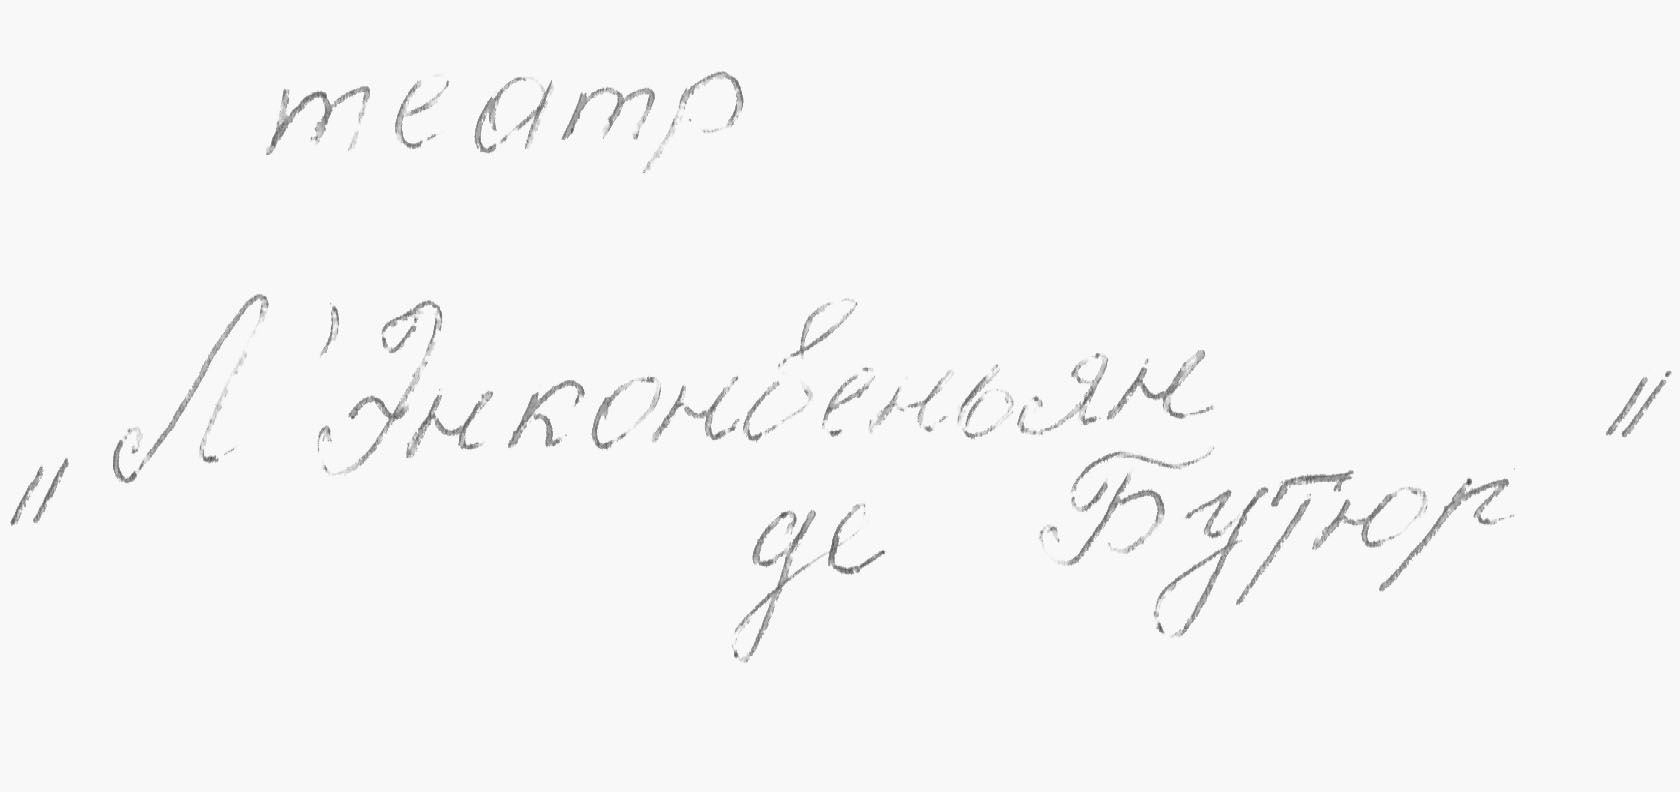 театр
„Л'Энконвеньян"
де Бутюр